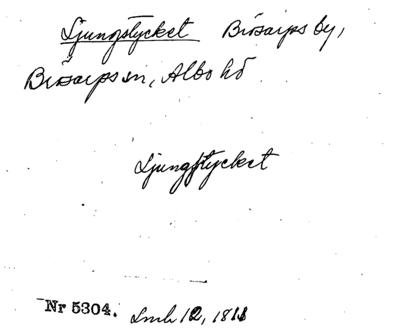 Ljungstycket Brösarps by,
Brösarps sn, Albo hd
Ljungstycket
Nr 5304. Lmh 12, 1811